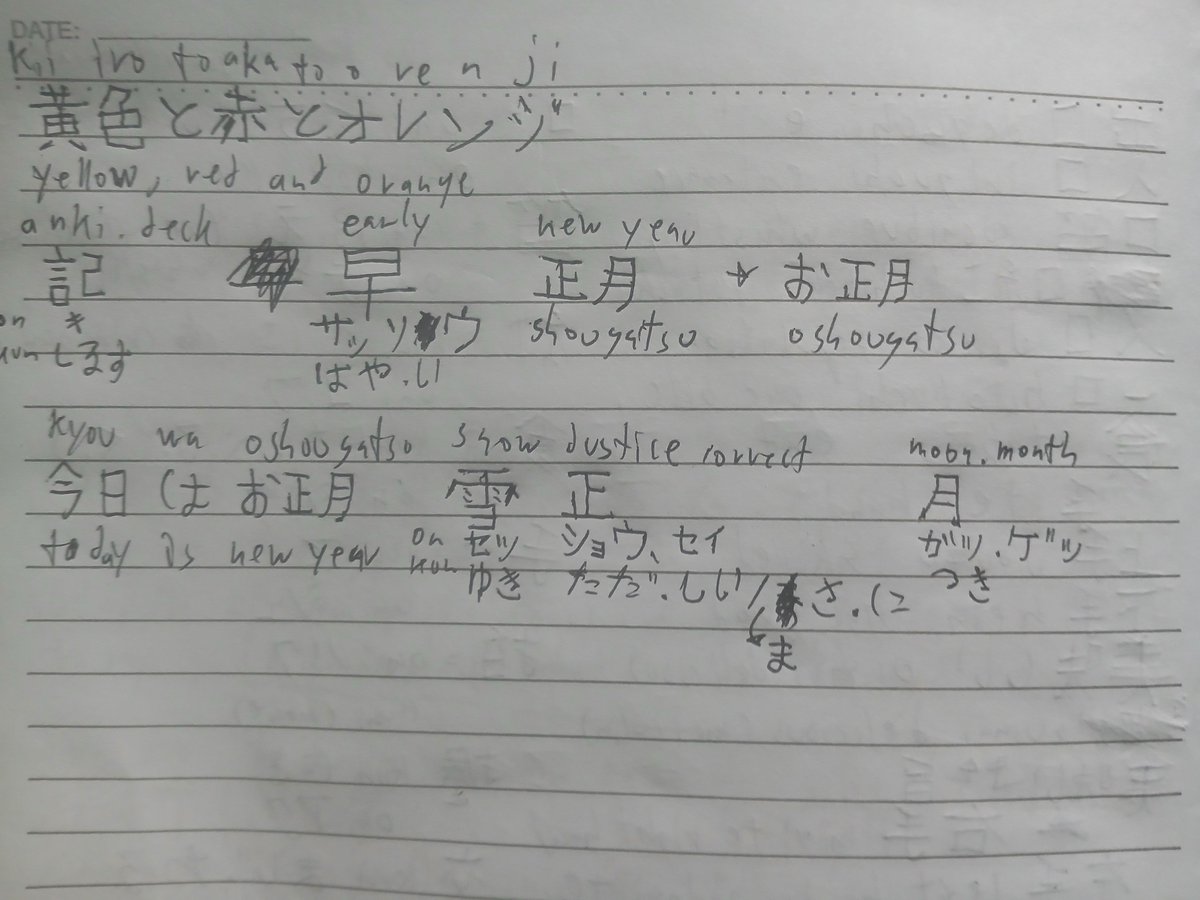 DATE:
Ki iro to aka to o re n ji
黄色と赤とオレンジ
yellow, red and orange
anki. deck early new year
記 早 正月 → お正月
on キ サッソウ shougatsu oshougatsu
kun しるす はや.い
kyou wa oshougatsu snow Justice correct moon. month
今日は お正月 雪 正 月
today is new year on セツ ショウ、セイ ガツ.ゲツ
kun ゆき ただ.しい/まさ.に つき